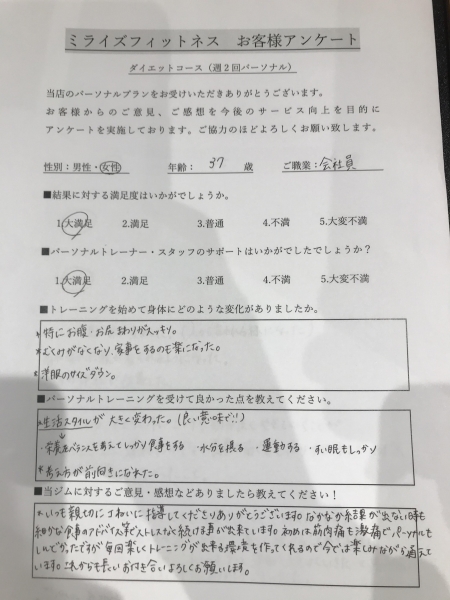 ミライズフィットネス お客様アンケート
ダイエットコース（週２回パーソナル）
当店のパーソナルプランをお受けいただきありがとうございます。
お客様からのご意見、ご感想を今後のサービス向上を目的に
アンケートを実施しております。ご協力のほどよろしくお願い致します。
性別：男性・女性 年齢： 37 歳 ご職業：会社員
■結果に対する満足度はいかがでしょうか。
1.大満足 2.満足 3.普通 4.不満 5.大変不満
■パーソナルトレーナー・スタッフのサポートはいかがでしたでしょうか？
1.大満足 2.満足 3.普通 4.不満 5.大変不満
■トレーニングを始めて身体にどのような変化がありましたか。
*特にお腹・お尻まわりがスッキリ。
*むくみがなくなり、家事をするのも楽になった。
*洋服のサイズダウン。
■パーソナルトレーニングを受けて良かった点を教えてください。
*生活スタイルが大きく変わった。(良い意味で!!)
・栄養バランスを考えてしっかり食事をする ・水分を摂る ・運動する ・すい眠もしっかり
*考え方が前向きになれた。
■当ジムに対するご意見・感想などありましたら教えてください！
*いつも親切にていねいに指導してくださりありがとうございます。なかなか結果が出ない時も
細かな食事のアドバイス等でストレスなく続ける事が出来ています。初めは筋肉痛も激痛でパーソナルも
でしたが毎回楽しくトレーニングが出来る環境を作ってくれるので今では楽しみながら通えて
います。これからも長いお付き合いよろしくお願いします。